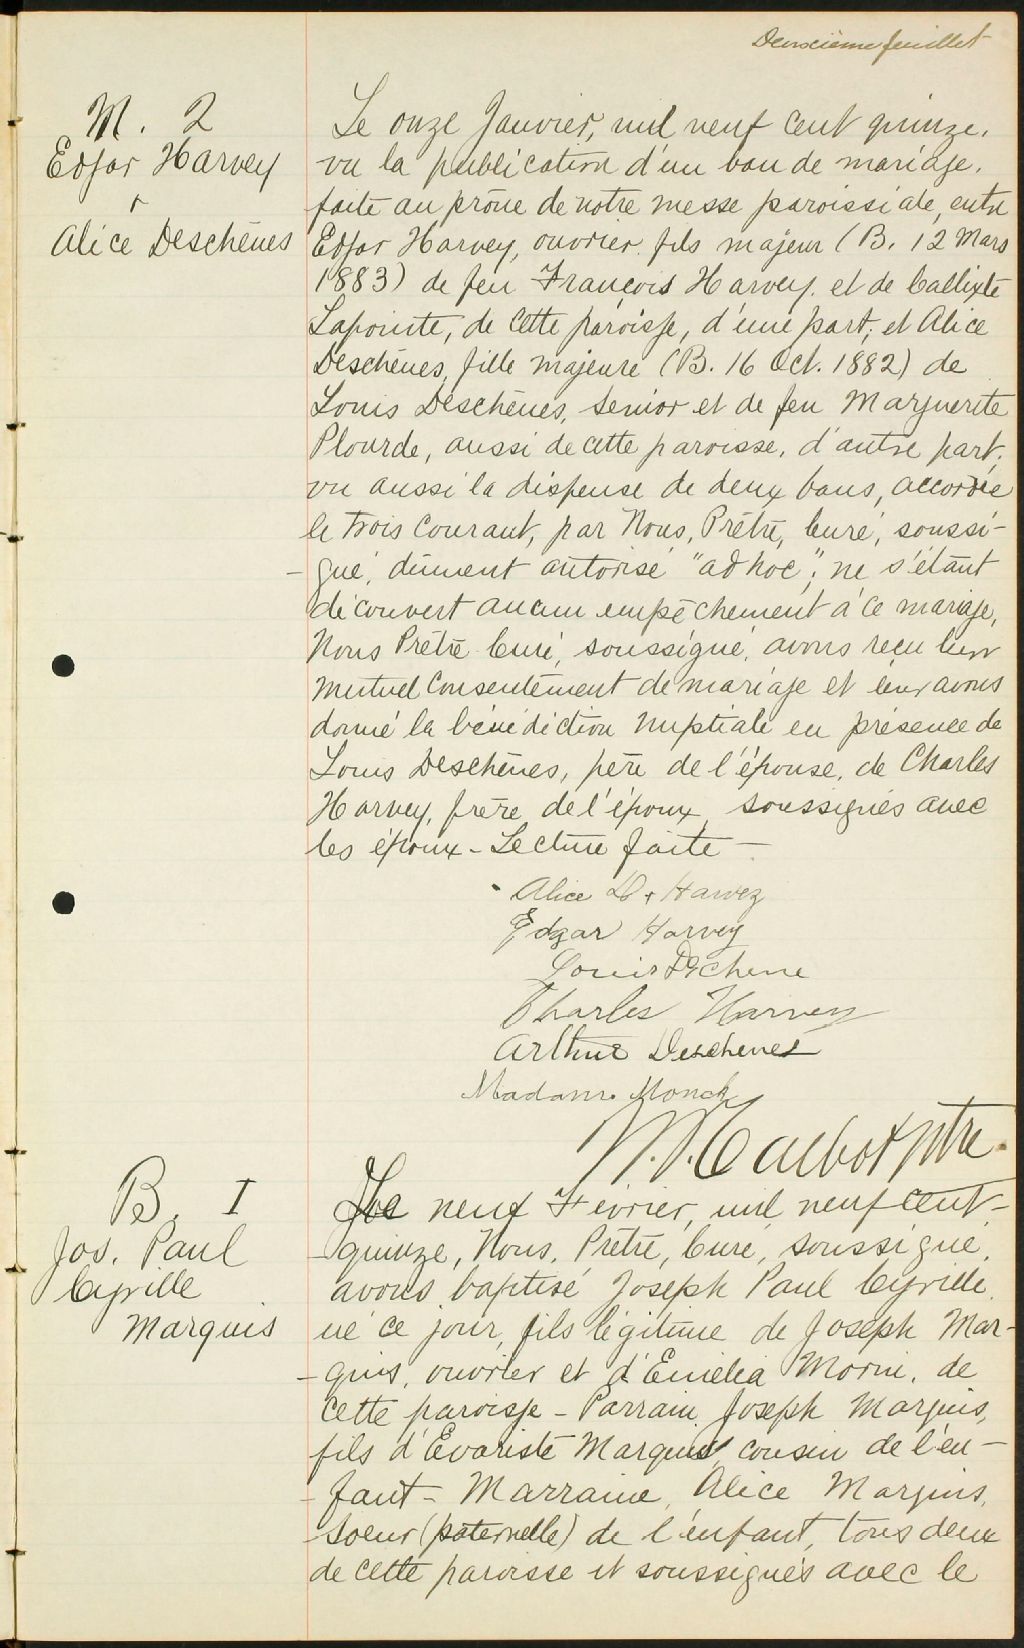 Deuxième feuillet
M. 2
Edgar Harvey
&
Alice Deschênes
Le onze Janvier, mil neuf cent quinze,
vu la publication d'un ban de mariage,
faite au prône de notre messe paroissiale, entre
Edgar Harvey, ouvrier, fils majeur (B. 12 Mars
1883) de feu François Harvey, et de Callixte
Lapointe, de cette paroisse, d'une part; et Alice
Deschênes, fille majeure (B. 16 Oct. 1882) de
Louis Deschênes, senior et de feu Marguerite
Plourde, aussi de cette paroisse, d'autre part,
vu aussi la dispense de deux bans, accordée
le trois courant, par Nous, Prêtre, Curé, soussi-
-gné, dûment autorisé "ad hoc"; ne s'étant
découvert aucun empêchement à ce mariage,
Nous Prêtre Curé, soussigné, avons reçu leur
mutuel consentement de mariage et leur avons
donné la bénédiction nuptiale en présence de
Louis Deschênes, père de l'épouse, de Charles
Harvey, frère de l'époux, soussignés avec
les époux - Lecture faite -
Alice D. Harvey
Edgar Harvey
Louis Dechene
Charles Harvey
Arthur Deschenes
Madame Monck
Talbot ptre
B. I
Jos. Paul
Cyrille
Marquis
Le neuf Février, mil neuf cent-
-quinze, Nous, Prêtre, Curé, soussigné,
avons baptisé Joseph Paul Cyrille,
né ce jour, fils légitime de Joseph Mar-
-quis, ouvrier et d'Emélia Morin, de
cette paroisse - Parrain, Joseph Marquis,
fils d'Évariste Marquis, cousin de l'en-
-fant - Marraine, Alice Marquis,
soeur (paternelle) de l'enfant, tous deux
de cette paroisse et soussignés avec le